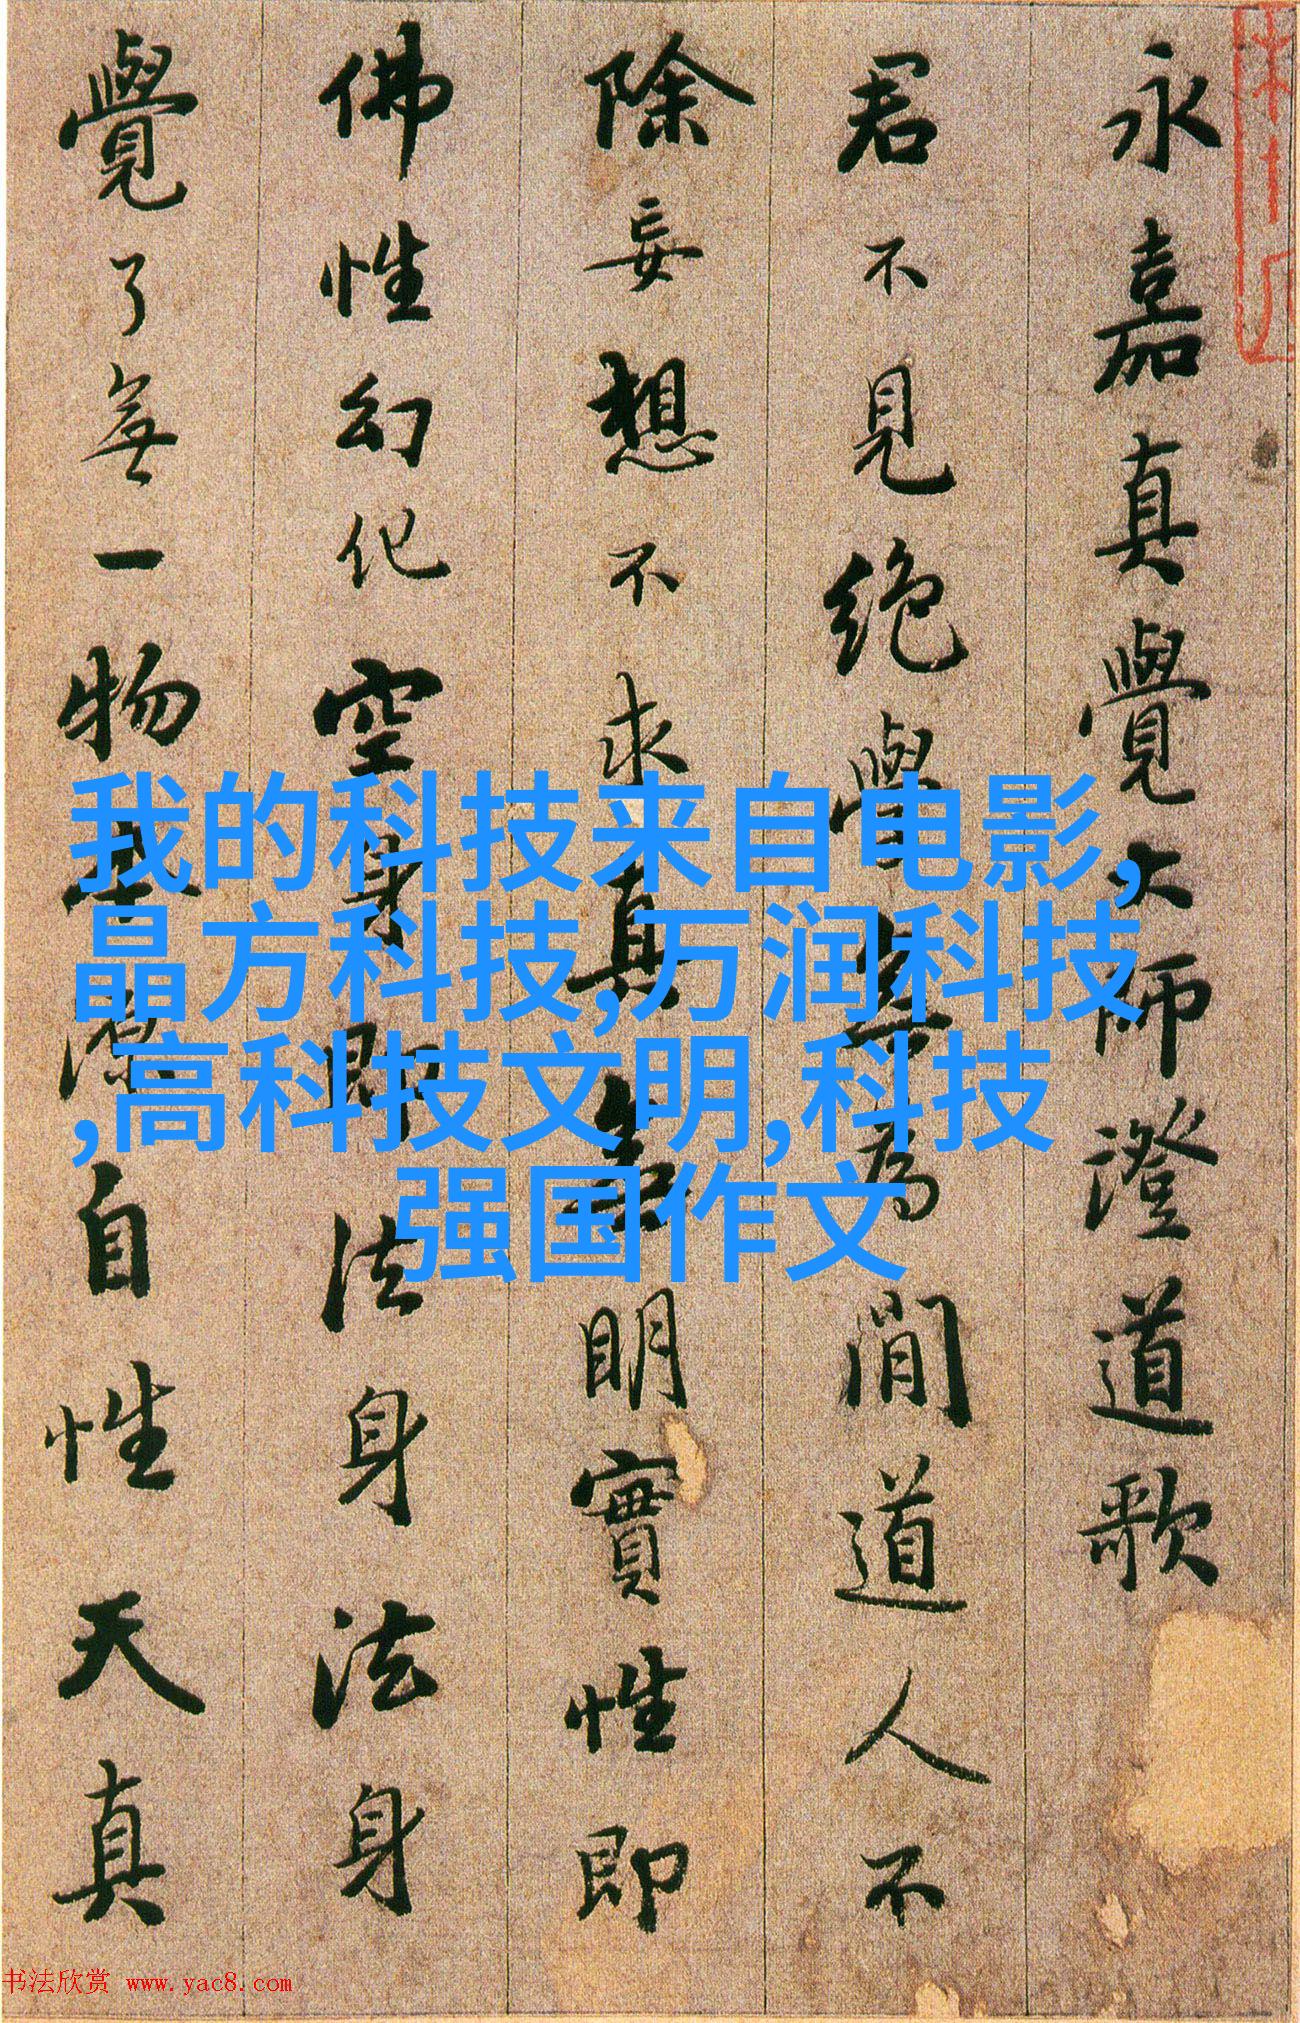 永嘉真覺大師澄道歌
君不見絕學無為閒道人不
除妄想不求真無明實性即
佛性幻化空身即法身法身
覺了無一物本源自性天真
我的科技来自电影,
晶方科技,万润科技
,高科技文明,科技
强国作文
书法欣赏 www.yac8.com